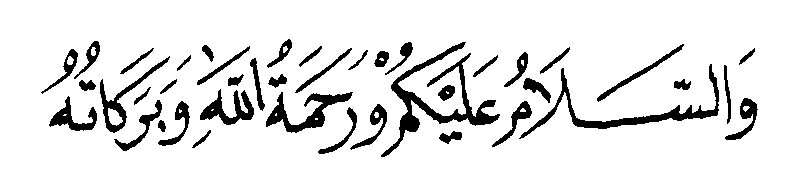 وَالسَّلَامُ عَلَيْكُمْ وَرَحْمَةُ اللّٰهِ وَبَرَكَاتُهُ